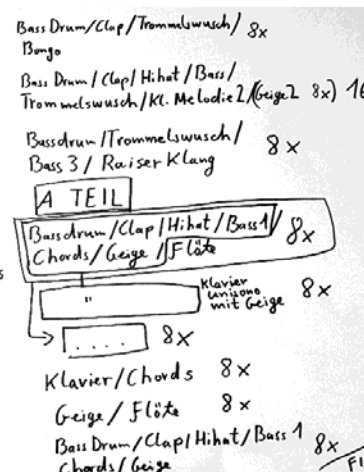 Bass Drum/Clap/Trommelswusch/ 8x
Bongo
Bass Drum/Clap/Hihat/Bass/
Trommelswusch/Kl. Melodie2/(Geige2 8x) 16
Bassdrum/Trommelswusch/
Bass 3/Raiser Klang 8x
A TEIL
Bassdrum/Clap/Hihat/Bass1/
Chords/Geige/Flöte 8x
" Klavier unisono mit Geige 8x
.... 8x
Klavier/Chords 8x
Geige/Flöte 8x
Bass Drum/Clap/Hihat/Bass 1 8x
Chords/Geige